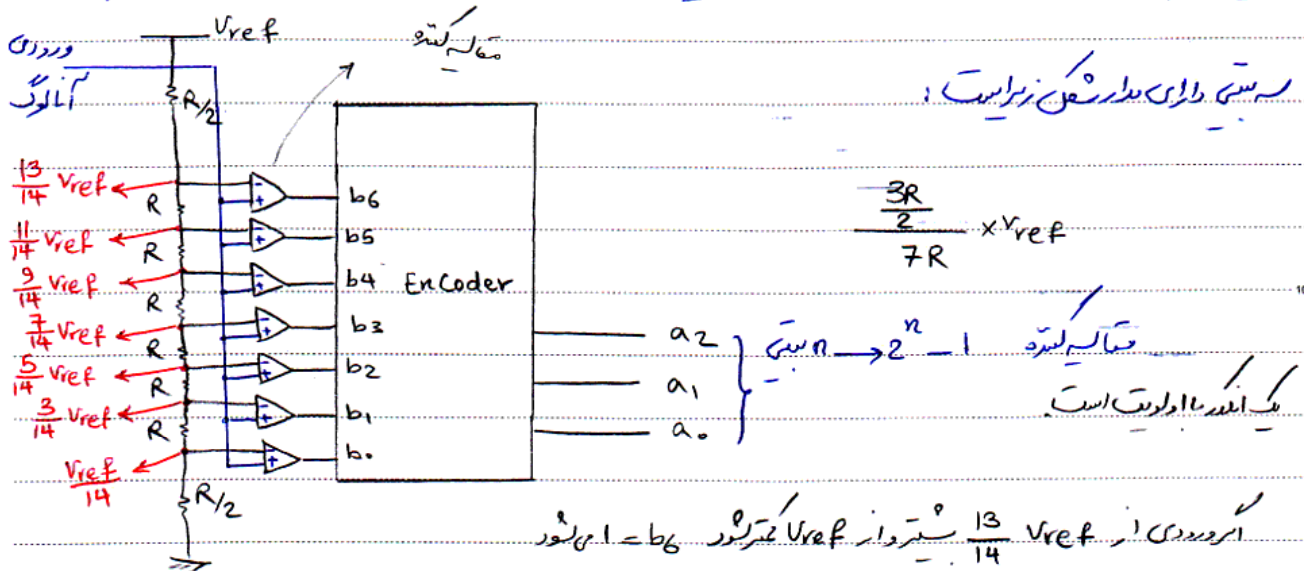 Vref
مقایسه کننده
ورودی
آنالوگ
سه بیتی دارای مدار شکل زیر است:
R/2
13/14 Vref
R
11/14 Vref
R
9/14 Vref
R
7/14 Vref
R
5/14 Vref
R
3/14 Vref
R
Vref/14
R/2
- +
- +
- +
- +
- +
- +
- +
b6
b5
b4
b3
b2
b1
b0
Encoder
a2
a1
a0
3R/2 / 7R × Vref
n بیتی → 2^n - 1 مقایسه کننده
یک انکدر با اولویت است.
10
اگر ورودی از 13/14 Vref بیشتر و از Vref کمتر شود b6 = 1 می شود